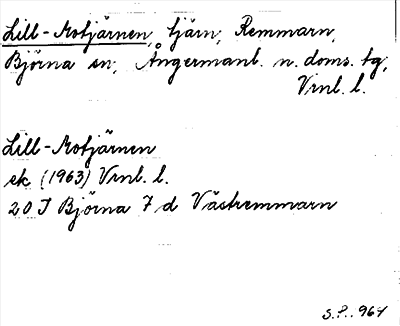 Lill-Motjärnen, tjärn, Remmarn,
Björna sn, Ångermanl. n. doms. tg,
Vrnl. l.
Lill-Motjärnen
ek (1963) Vrnl. l.
20 J Björna 7 d Västremmarn
S.P. 1964